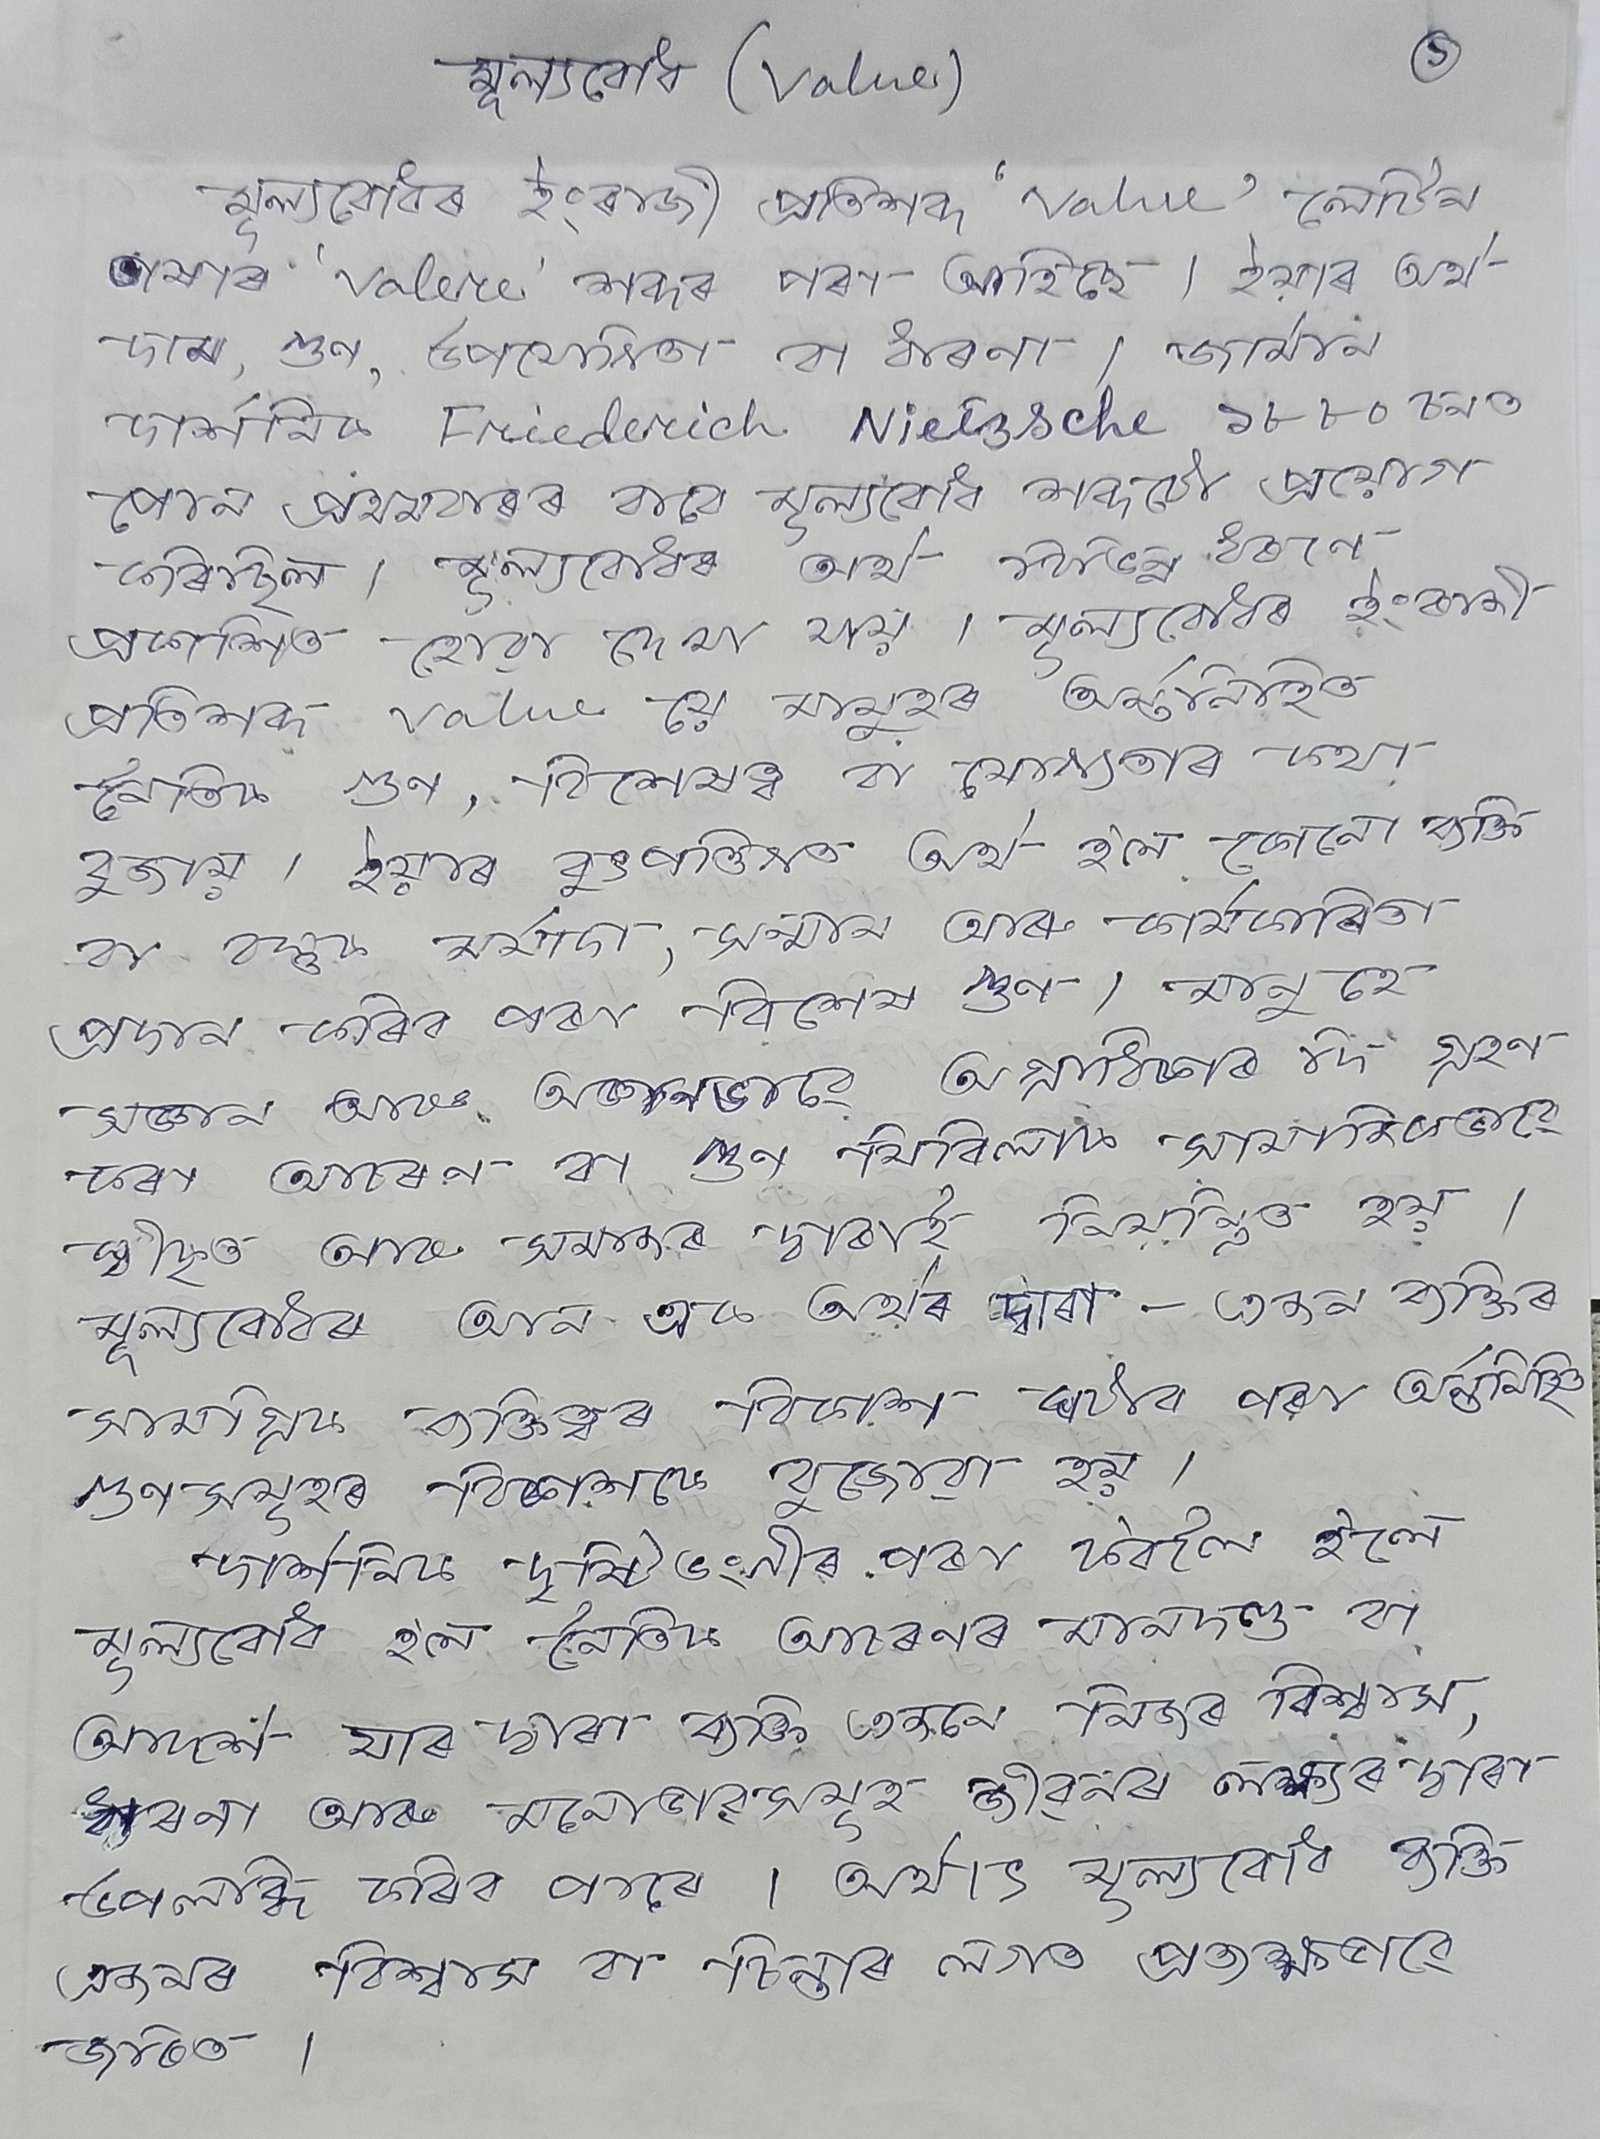 মূল্যবোধ (Value)
১
মূল্যবোধৰ ইংৰাজী প্ৰতিশব্দ 'Value' লেটিন
ভাষাৰ 'Valere' শব্দৰ পৰা আহিছে । ইয়াৰ অৰ্থ
দাম, গুণ, উপযোগিতা বা ধাৰণা । জাৰ্মান
দাৰ্শনিক Friederich Nietzsche ১৮৮০ চনত
পোন প্ৰথমবাৰৰ বাবে মূল্যবোধ শব্দটো প্ৰয়োগ
কৰিছিল । মূল্যবোধৰ অৰ্থ বিভিন্ন ধৰণে
প্ৰকাশিত হোৱা দেখা যায় । মূল্যবোধৰ ইংৰাজী
প্ৰতিশব্দ Value য়ে মানুহৰ অৰ্ন্তনিহিত
নৈতিক গুণ, বিশেষত্ব বা যোগ্যতাৰ কথা
বুজায় । ইয়াৰ বুৎপত্তিগত অৰ্থ হ'ল কোনো ব্যক্তি
বা বস্তুক মৰ্যাদা, সন্মান আৰু কাৰ্যকাৰিতা
প্ৰদান কৰিব পৰা বিশেষ গুণ । মানুহে
সজ্ঞান আৰু অজ্ঞানভাবে অগ্ৰাধিকাৰ দি গ্ৰহণ
কৰা আচৰণ বা গুণ যিবিলাক সামাজিকভাবে
স্বীকৃত আৰু সমাজৰ দ্বাৰাই নিয়ন্ত্ৰিত হয় ।
মূল্যবোধৰ আন এক অৰ্থৰ দ্বাৰা - এজন ব্যক্তিৰ
সামগ্ৰিক ব্যক্তিত্বৰ বিকাশ ঘটাব পৰা অৰ্ন্তনিহিত
গুণসমূহৰ বিকাশকে বুজোৱা হয় ।
দাৰ্শনিক দৃষ্টিভংগীৰ পৰা ক'বলৈ হ'লে
মূল্যবোধ হ'ল নৈতিক আচৰণৰ মানদণ্ড বা
আদৰ্শ যাৰ দ্বাৰা ব্যক্তি এজনে নিজৰ বিশ্বাস,
ধাৰণা আৰু মনোভাৱসমূহ জীৱনৰ লক্ষ্যৰ দ্বাৰা
উপলব্ধি কৰিব পাৰে । অৰ্থাৎ মূল্যবোধ ব্যক্তি
এজনৰ বিশ্বাস বা চিন্তাৰ লগত প্ৰত্যক্ষভাবে
জড়িত ।